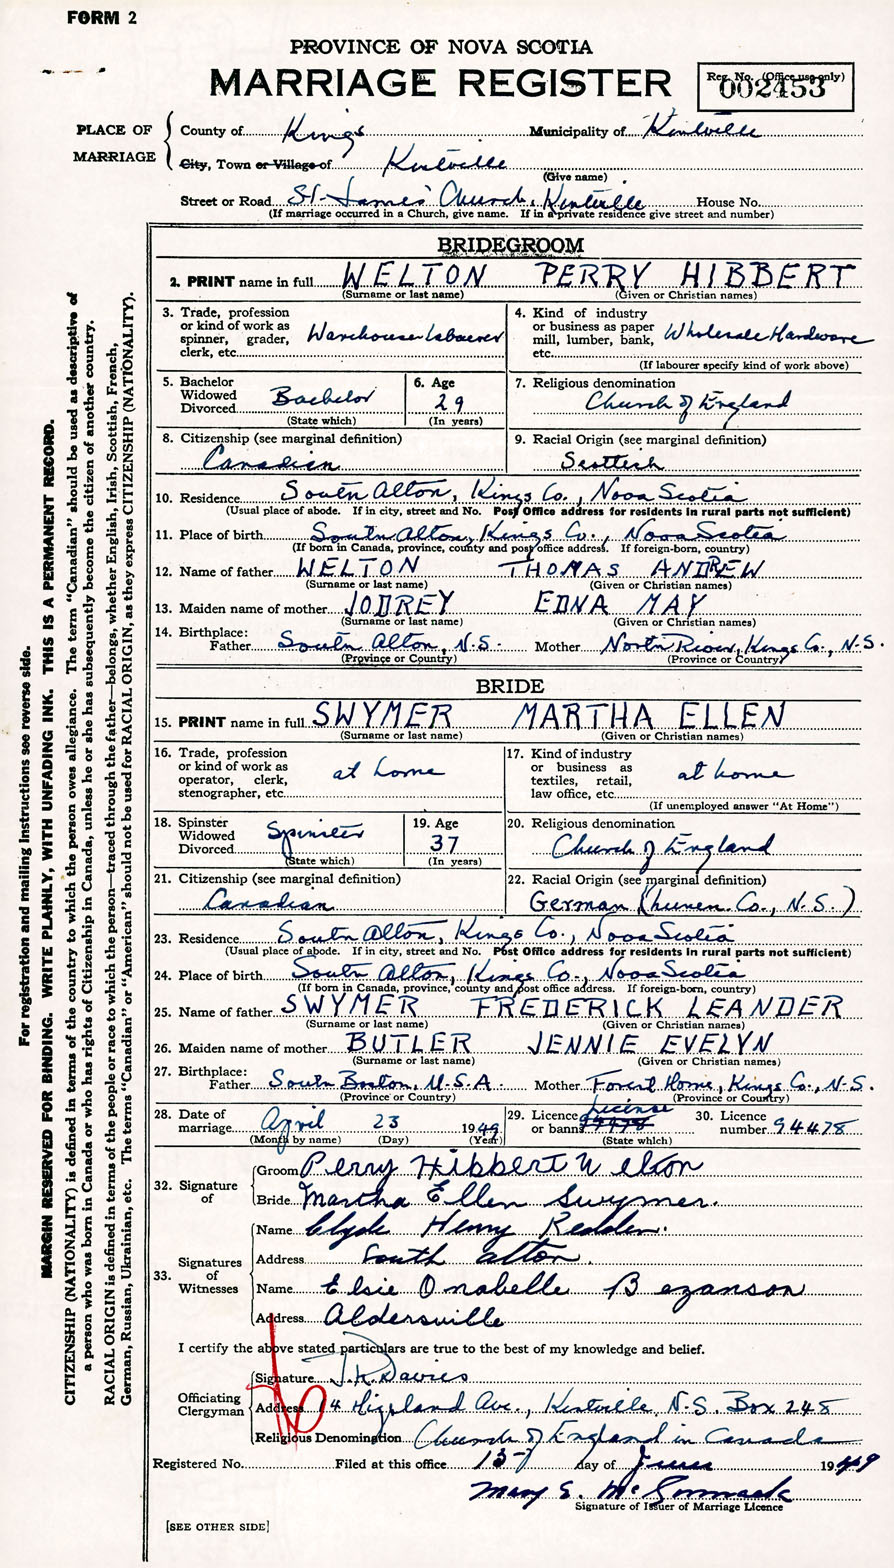 FORM 2
PROVINCE OF NOVA SCOTIA
MARRIAGE REGISTER
Reg. No. (Office use only)
002453
PLACE OF MARRIAGE
County of Kings Municipality of Kentville
City, Town or Village of Kentville
(Give name)
Street or Road St. James' Church, Kentville House No.
(If marriage occurred in a Church, give name. If in a private residence give street and number)
BRIDEGROOM
2. PRINT name in full WELTON PERRY HIBBERT
(Surname or last name) (Given or Christian names)
3. Trade, profession or kind of work as spinner, grader, clerk, etc. Warehouse Labourer
4. Kind of industry or business as paper mill, lumber, bank, etc. Wholesale Hardware
(If labourer specify kind of work above)
5. Bachelor Widowed Divorced Bachelor
(State which)
6. Age 29
(In years)
7. Religious denomination
Church of England
8. Citizenship (see marginal definition)
Canadian
9. Racial Origin (see marginal definition)
Scottish
10. Residence South Alton, Kings Co., Nova Scotia
(Usual place of abode. If in city, street and No. Post Office address for residents in rural parts not sufficient)
11. Place of birth South Alton, Kings Co., Nova Scotia
(If born in Canada, province, county and post office address. If foreign-born, country)
12. Name of father WELTON THOMAS ANDREW
(Surname or last name) (Given or Christian names)
13. Maiden name of mother JODREY EDNA MAY
(Surname or last name) (Given or Christian names)
14. Birthplace:
Father South Alton, N.S. Mother North River, Kings Co., N.S.
(Province or Country) (Province or Country)
BRIDE
15. PRINT name in full SWYMER MARTHA ELLEN
(Surname or last name) (Given or Christian names)
16. Trade, profession or kind of work as operator, clerk, stenographer, etc. at home
17. Kind of industry or business as textiles, retail, law office, etc. at home
(If unemployed answer "At Home")
18. Spinster Widowed Divorced Spinster
(State which)
19. Age 37
(In years)
20. Religious denomination
Church of England
21. Citizenship (see marginal definition)
Canadian
22. Racial Origin (see marginal definition)
German (Lunen Co., N.S.)
23. Residence South Alton, Kings Co., Nova Scotia
(Usual place of abode. If in city, street and No. Post Office address for residents in rural parts not sufficient)
24. Place of birth South Alton, Kings Co., Nova Scotia
(If born in Canada, province, county and post office address. If foreign-born, country)
25. Name of father SWYMER FREDERICK LEANDER
(Surname or last name) (Given or Christian names)
26. Maiden name of mother BUTLER JENNIE EVELYN
(Surname or last name) (Given or Christian names)
27. Birthplace:
Father South Boston, U.S.A. Mother Forest Home, Kings Co., N.S.
(Province or Country) (Province or Country)
28. Date of marriage April 23 1949
(Month by name) (Day) (Year)
29. Licence or banns License
(State which)
30. Licence number 94478
32. Signature of
Groom Perry Hibbert Welton
Bride Martha Ellen Swymer.
33. Signatures of Witnesses
Name Clyde Henry Redden.
Address South Alton.
Name Elsie Onabelle Bezanson
Address Aldersville
I certify the above stated particulars are true to the best of my knowledge and belief.
Officiating Clergyman
Signature J.K. Davies
Address 14 Highland Ave., Kentville, N.S. Box 248
Religious Denomination Church of England in Canada
Registered No. Filed at this office 13 day of June 1949
Mary E. McCormack
Signature of Issuer of Marriage Licence
[SEE OTHER SIDE]
For registration and mailing instructions see reverse side.
MARGIN RESERVED FOR BINDING. WRITE PLAINLY, WITH UNFADING INK. THIS IS A PERMANENT RECORD.
CITIZENSHIP (NATIONALITY) is defined in terms of the country to which the person owes allegiance. The term "Canadian" should be used as descriptive of
a person who was born in Canada or who has rights of Citizenship in Canada, unless he or she has subsequently become the citizen of another country.
RACIAL ORIGIN is defined in terms of the people or race to which the person—traced through the father—belongs, whether English, Irish, Scottish, French,
German, Russian, Ukrainian, etc. The terms "Canadian" or "American" should not be used for RACIAL ORIGIN, as they express CITIZENSHIP (NATIONALITY).